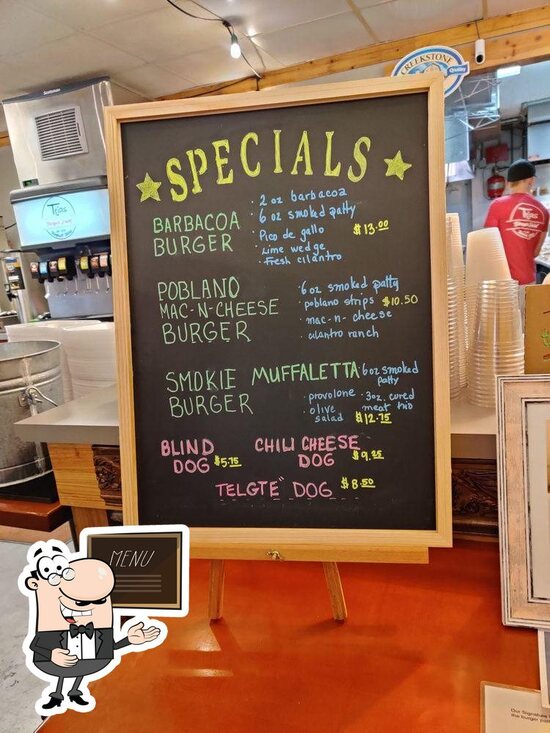 CREEKSTONE
Quality
SPECIALS
BARBACOA
BURGER
· 2 oz barbacoa
· 6 oz smoked patty
· Pico de gallo
· Lime wedge
· Fresh cilantro
$13.00
POBLANO
MAC-N-CHEESE
BURGER
· 6 oz smoked patty
· poblano strips $10.50
· mac-n-cheese
· cilantro ranch
SMOKIE MUFFALETTA
BURGER
· 6 oz smoked
patty
· provolone
· olive
salad
· 3oz. cured
meat trio
$12.75
BLIND
DOG $5.75
CHILI CHEESE
DOG $9.25
TELGTE" DOG $8.50
MENU
Tejas
Tejas
Our Signature